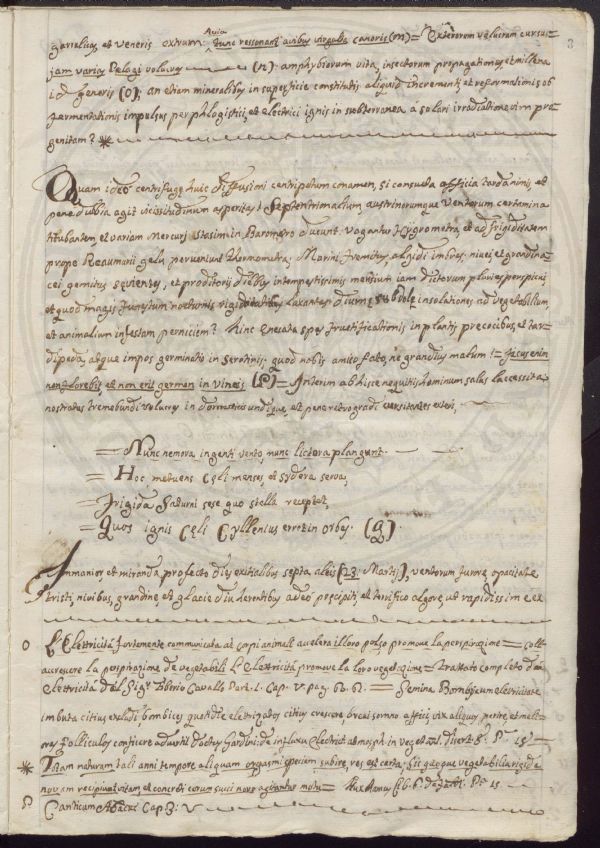 Avia
garralicas, et veneris extrum: tunc ressonant avibus virgulta canoris (m) = Exterorum velucrum cursus
jam varios Pelagi volucres (n): amphybiorum vita, insectorum propagationes, et millena
id generis (o): an etiam mineralibus in superficie constitutis aliquid incrementi, et reformationis ob
fermentationis impulsus per phlogistici, et electrici ignis in subterranea à solari irradiatione vim pro
genitam? *
3
Quam ideo centrifugæ huic diffusioni centripetum conamen, si consueta officia tardaninis, et
pene dubia agit vicissitudinum asperitas! Septentrionalium, austrinorumque ventorum certamina
titubantem, et variam Mercurj stasim in Barometro ducunt. vagantur Hygrometra, et ad frigiditatem
prope Reaumurii gelu perveniunt thermometra; Marini fremitus, algidi imbres, nivei, et grandina
cei gemitus sevientes, et proditorij diebus intempestissimis mensium iam dictorum pluvies perspicui,
et quod magis funestum nocturnis rigiditatibus laxantes diurne subdole insolationes ad vegetabilium,
et animalium infestam perniciem? Hinc enecata spes fructificationis in plantis precocibus, et tar
dipeda, atque impos germinatio in serotinis; quod nobis amito fato, ne grandius malum! = ficus enim
non florebit, et non erit germen in vineis (p) = Interim ad hisce nequitis hominum salus lacessita
nostrates tremebundi volucres in domesticos undique, et pene retrogradi cursitantes exteri,
= Nunc nemora ingenti vento, nunc littora plangunt.
= Hoc metuens Cęli menses et sydera serva,
= Frigida Saturni sese quo stella receptet,
= Quos ignis Cęli Cyllenius erret in orbes. (q)
Immanior, et miranda profecto dies exitialibus septa aleis (23. Martij), ventorum furore, opacitate
tristi, nivibus, grandine, et glacie diu herentibus adeo precipiti, et terrifico algore, ut rapidissim e ex
o L'Elettricità fortemente communicata ai corpi animali accelera il loro polso promove la perspirazione = coll'
accrescere la perspirazione de vegetabili L'Elettricità promove la loro vegetazione = Trattato completo d'
Elettricità del Sigr Tiberio Cavallo Part. 1. Cap. V. pag. 60. 61. = Semina Bombÿcum eletricitate
imbuta citius excludi bombices quotidie elettrizatos citius crescere, brevi somno affici, vix aliquos perire, et melio
res folliculos conficere adverttit doctus Gardini: de influxu Electricit. atmosph. in veget.
* Totam naturam tali anni tempore aliquam orgasmi speciem subire, res est certa. Sic quoque vegetabilia rigida
novam recipiunt vitam, et concreti eorum succi novo agitantur motu =
p Canticum Abacuc Cap. 3: V